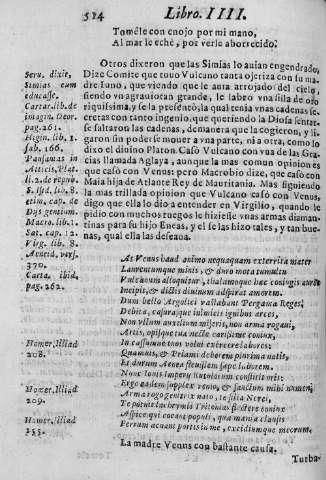 524 Libro. IIII.
Tomèle con enojo por mi mano,
Al mar le eché, por verle aborrecido.
Otros dixeron que las Simias lo auian engendrado,
Seru. dixit,
Simias eum
educasse.
Cartar. lib. de
imagin. Deor.
pag. 261.
Higin. lib. 1.
fab. 166.
Pausanias in
Atticis, Plat.
li. 2. de repub.
S. Isid. lib. 8.
etim. cap. de
Dys gentium.
Macro. lib. 1.
Sat. cap. 12.
Virg. lib. 8.
Aeneid. vers.
370.
Carta. ibid.
pag. 262.
Homer. Iliad
208.
Homer. Iliad
209.
Homer. Iliad
355.
Dize Comite que touo Vulcano tanta ojeriza con su ma
dre Iuno, que viendo que le auia arrojado del cielo, sin
tiendo su agrauio tan grande, le labro vna silla de oro
riquissima, y se la presentò, la qual tenia vnas cadenas se-
cretas con tanto ingenio, que queriendo la Diosa sentarse
saltaron las cadenas, demanera que la cogieron, y li-
garon sin poderse mouer a vna parte, ni a otra, como lo
dixo el diuino Platon. Casò Vulcano con vna de las Gra-
cias llamada Aglaya, aunque la mas comun opinion es
que casò con Venus: pero Macrobio dize, que casò con
Maia hija de Atlante Rey de Mauritania. Mas siguiendo
la mas trillada opinion que Vulcano casò con Venus,
digo que ella lo dio a entender en Virgilio, quando le
pidio con muchos ruegos le hiziesse vnas armas diaman
tinas para su hijo Eneas, y el se las hizo tales, y tan bue-
nas, qual ella las desseaua.
At Venus haud animo nequaquam exterrita mater
Laurentumque minis, & duro mota tumultu
Vulcanum alloquitur, thalamoque haec coniugis aureo
Incipit, & dictis diuinum adspirat amorem.
Dum bello Argolici vastabant Pergama Reges,
Debita, casurasque inimicis ignibus arces,
Non vllum auxilium miseris, non arma rogaui,
Artis, opisque tuae nec te carissime coniux,
In cassumue tuos volui exercere labores:
Quamuis, & Priami deberem plurima natis,
Et durum Aeneae fleuissem saepe laborem.
Nunc Iouis Imperijs Rutulorum constitit oris:
Ergo eadem supplex venio, & sanctum mihi numen,
Arma rogo genitrix nato, te filia Nerei,
Te potuit lachrymis Tithonia flectere coniux
Aspice qui coeant populi, quae moenia clausis
Ferrum acuant portis in me, excidiumque meorum.
La madre Venus con bastante causa,
Turba-